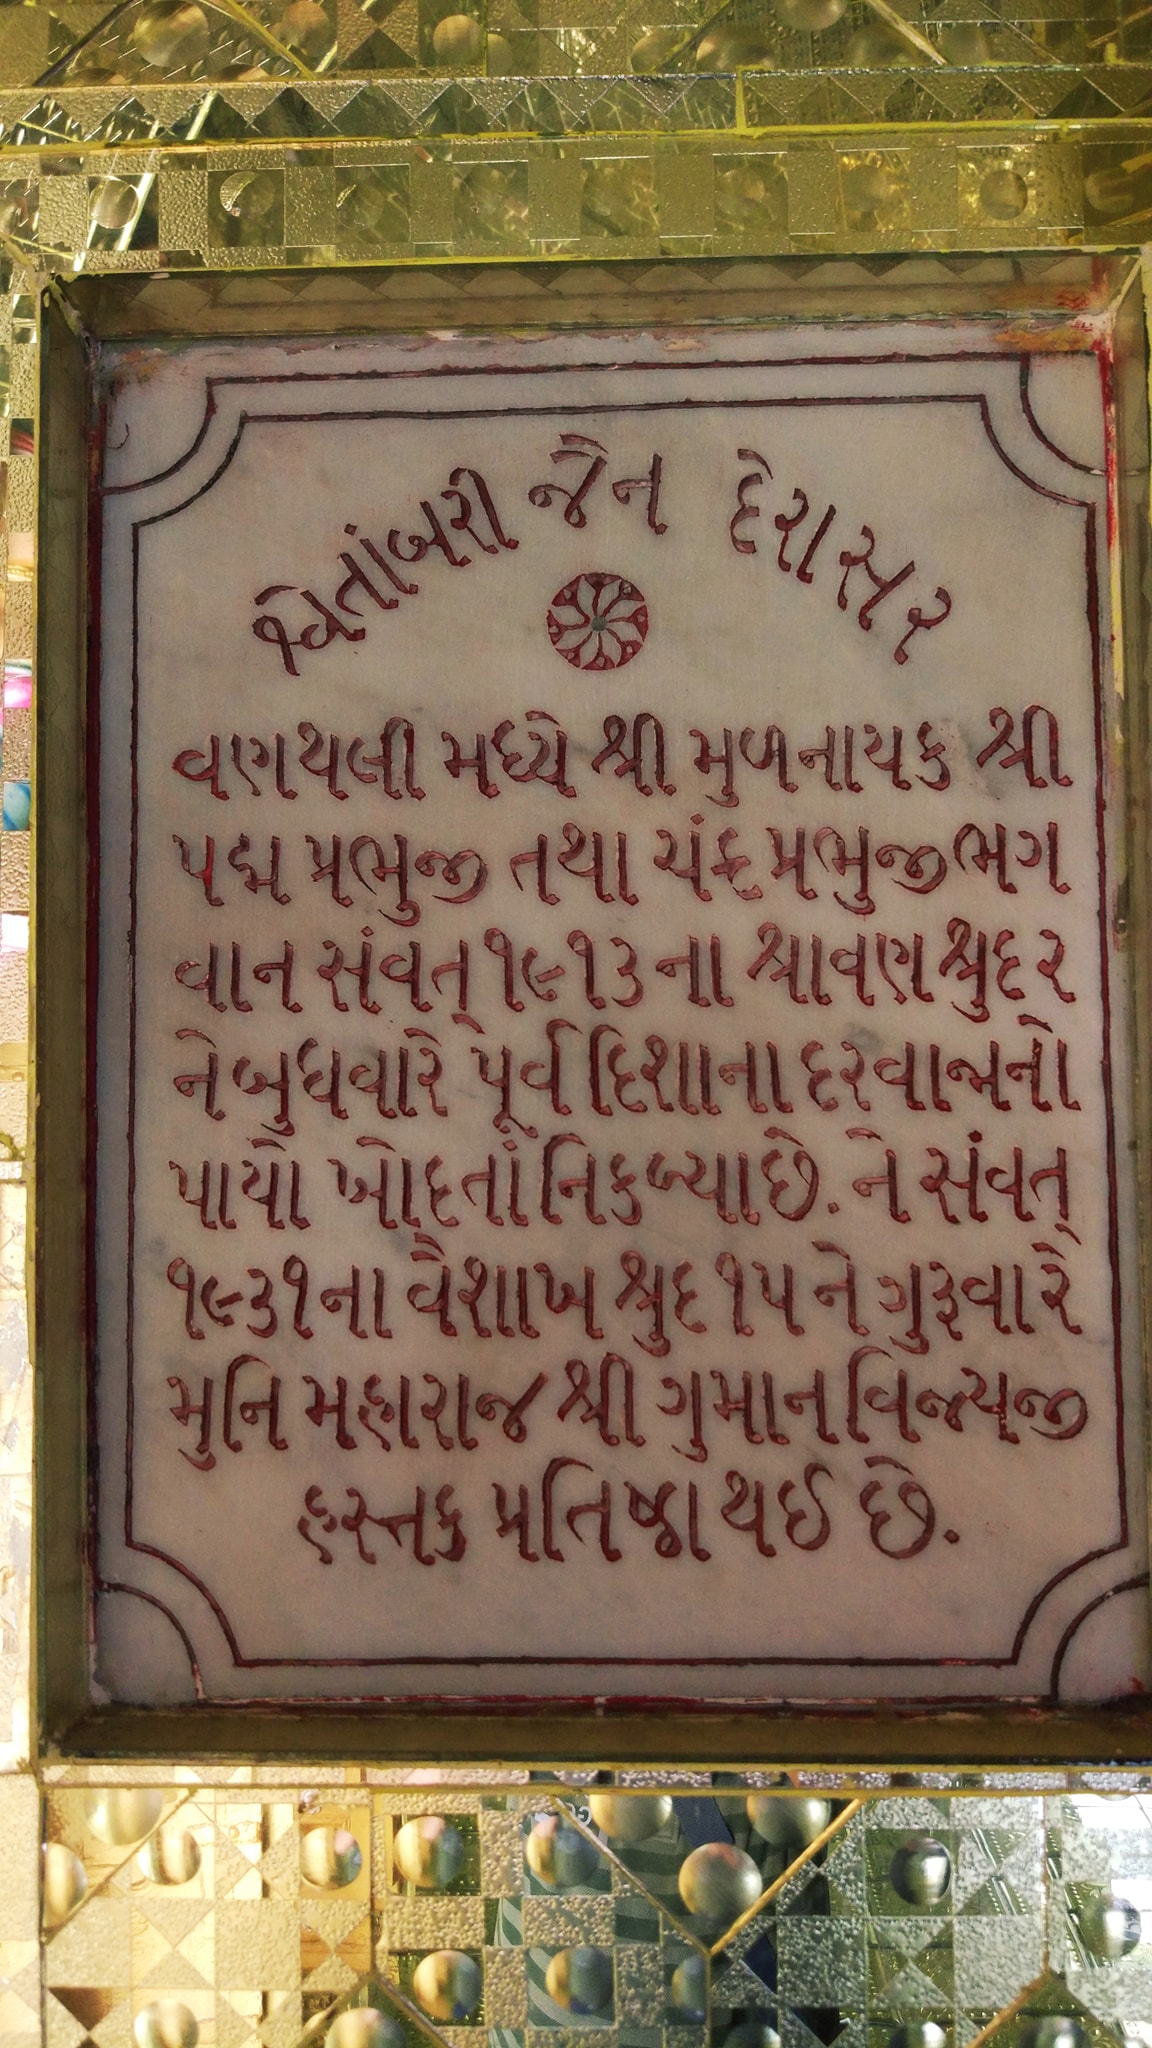 શ્વેતાંબરી જૈન દેરાસર
વણથલી મધ્યે શ્રી મુળનાયક શ્રી
પદ્મ પ્રભુજી તથા ચંદ્ર પ્રભુજી ભગ
વાન સંવત્ ૧૯૧૩ ના શ્રાવણ શ્રુદ ૨
ને બુધવારે પૂર્વ દિશાના દરવાજાનો
પાયો ખોદતાં નિકળ્યા છે. ને સંવત્
૧૯૩૧ના વૈશાખ શ્રુદ ૧૫ ને ગુરૂવારે
મુનિ મહારાજ શ્રી ગુમાન વિજ્યજી
હસ્તક પ્રતિષ્ઠા થઈ છે.